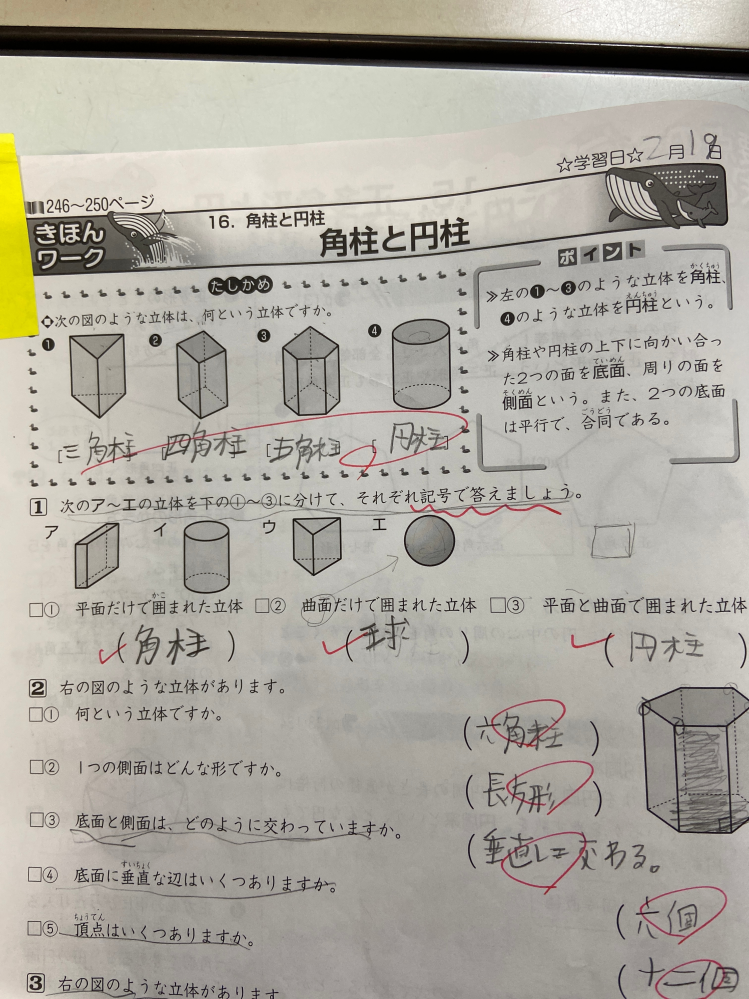 ☆学習日☆ 2月19日
246〜250ページ
きほん
ワーク
16. 角柱と円柱
角柱と円柱
たしかめ
次の図のような立体は、何という立体ですか。
❶ ❷ ❸ ❹
[三角柱 四角柱 [五角柱 [円柱]
ポイント
≫左の❶〜❸のような立体を角柱、
❹のような立体を円柱という。
≫角柱や円柱の上下に向かい合っ
た2つの面を底面、周りの面を
側面という。また、2つの底面
は平行で、合同である。
1 次のア〜エの立体を下の①〜③に分けて、それぞれ記号で答えましょう。
ア イ ウ エ
□① 平面だけで囲まれた立体 □② 曲面だけで囲まれた立体 □③ 平面と曲面で囲まれた立体
(角柱) (球) (円柱)
2 右の図のような立体があります。
□① 何という立体ですか。
(六角柱)
□② 1つの側面はどんな形ですか。
(長方形)
□③ 底面と側面は、どのように交わっていますか。
(垂直に交わる。
□④ 底面に垂直な辺はいくつありますか。
(六個
□⑤ 頂点はいくつありますか。
(十二個
3 右の図のような立体があります